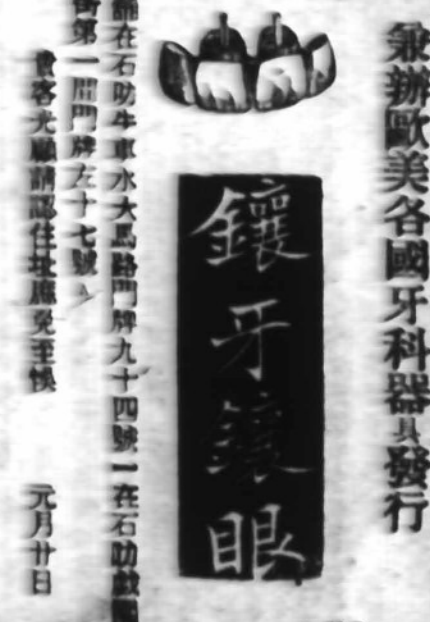 兼辦歐美各國牙科器具發行
鑲牙鑲眼
舖在石叻牛車水大馬路門牌九十四號一在石叻戲園
街第一間門牌左十七號
貴客光顧請認住址庶免至悞
元月廿日